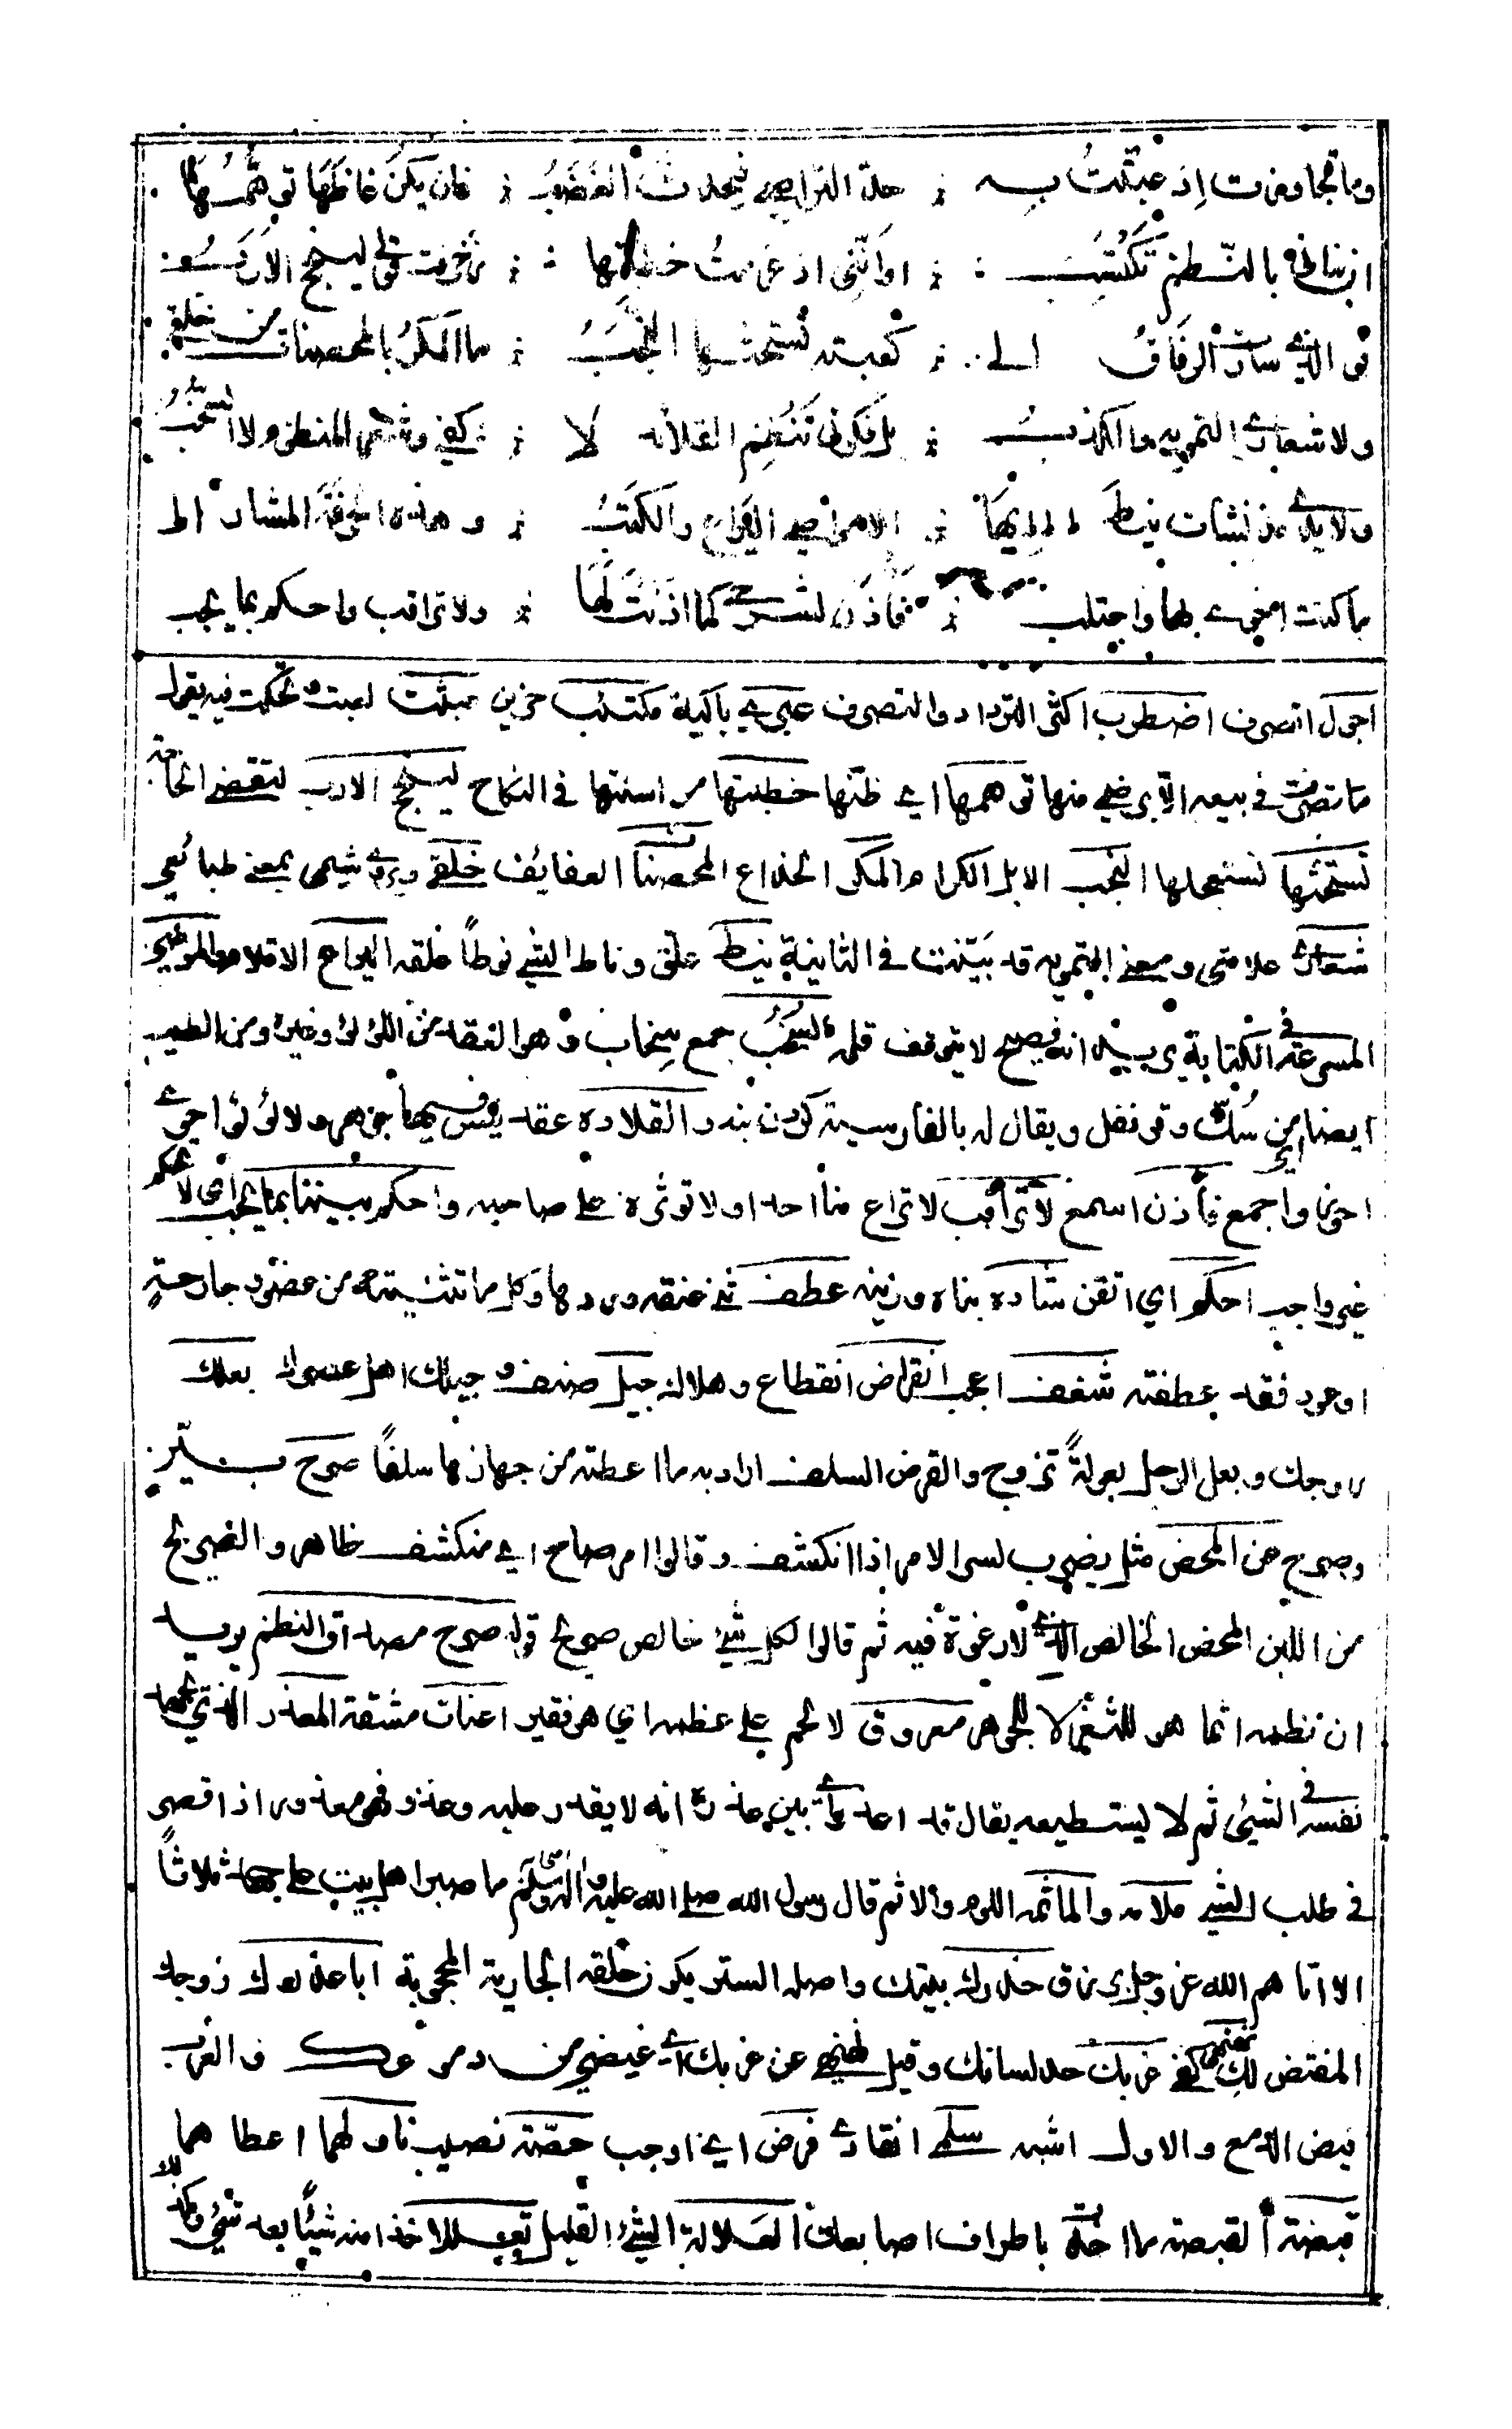 وما تجاوزت اذ عبثتُ به ؞ حدّ التراضي فيحدث الغضبُ ؞ فان يكن غاظها توهّمُها
ان بناني بالنّظم تكتسبُ ؞ او انّني اذ عزمتُ خطبتها ؞ زخرفت قولي لينجح الاربُ
فو الذي سارت الرفاقُ الى ؞ كعبته تستحثها النُجُبُ ؞ ما المكرُ بالمحصنات من خلقي
ولا شعاري التمويه والكذبُ ؞ بل فكرتي تنظم القلائد لا ؞ كفي وشعري المنظوم لا السخبُ
ولا يدي مذ نشأت نيطَ بها ؞ الا مواضي اليراع والكتبُ ؞ وهذه الحرفة المشار الى
ما كنت احوي بها واجتلب ؞ فأذن لشرحي كما اذنتَ لها ؞ ولا تراقب واحكم بما يجب
اجول اتصرف اضطرب اكثر الترداد والتصرف عبرى باكية مكتئب حزين عبثت لعبت وتحكمت فيه يقول
ما تصرفت في بيعه الا برضى منها توهمها اي ظنّها خطبتها مراسنتها في النكاح لينجح الارب لتقضى الحاجة
تستحثها تستعجلها النجب الابل الكرام والمكر الخداع المحصنات العفائف خلقي ويروى شيمي بمعنى طبائعي
شعاري علامتي ومعنى التمويه قد بيّنت في الثانية نيط علّق وناط الشئ نوطاً علقه اليراع الاقلام والمواضي
المسرعة في الكتابة يريد انه فصيح لا يتوقف قلمه السُخُب جمع سِخاب وهو العقد من اللؤلؤ وغيره ومن الطيب
ايضا من سُكّ وقرنفل ويقال له بالفارسية كردن بند والقلادة عقد يغرس فيها جوهر ولا لؤلؤ احوي
احوز واجمع فأذن اي اسمع لا تراقب لا تراع منا احدا ولا توثره على صاحبه واحكم بيننا بما يجب اي لا تحكم
غير واجب احكم اي اتقن شاده بناه وزينه عطف ثنى عنقه وردها وكل ما تثنيته من عضو وجارحةٍ
او عود فقد عطفته شغف اعجب انقراض انقطاع وهلاك جيل صنف وجيلك اهل عصرك بعلك
زوجك وبعل الرجل بعولةً تزوج والقرض السلف اراد به ما اعطته من جهازها سلفاً صرح بيّن
وصرح عن المحض مثل يضرب لسر الامر اذا انكشف وقالوا امر صراح اي منكشف ظاهر والصريح
من اللبن المحض الخالص الذي لا رغوة فيه ثم قالوا لكل شئ خالص صريح قوله صرح مصداق النظم يريد
ان نظمه انما هو للشعر لا للجوهر معروق لا لحم على عظمه اي هو فقير اعنات مشقة المعذر الذي يجهد
نفسه في الشئ ثم لا يستطيعه يقال قد اعذر اي بين عذره انه لا يقدر عليه وعذر فهو معذور اذا قصر
في طلب الشئ ملامة والمأثمة اللوم والاثم قال رسول الله صلى الله عليه واله وسلم ما صبر اهل بيت على جهد ثلاثاً
الا اتاهم الله عز وجل برزق خدرك بيتك واصله الستر يكون خلفه الجارية المحجوبة ابا عذرك زوجك
المفتض لك كفي غربك حد لسانك وقيل نهنهي عن غربك اي غيضي من دموعك والغرب
فيض الدمع والاول اشبه سلمي انقادي فرض اي اوجب حصّة نصيب ناولهما اعطاهما
قبضة القبصة ما اخذت باطراف اصابعك العلالة الشئ القليل تعلل للاخذ منه شيئا بعد شئ وكذلك